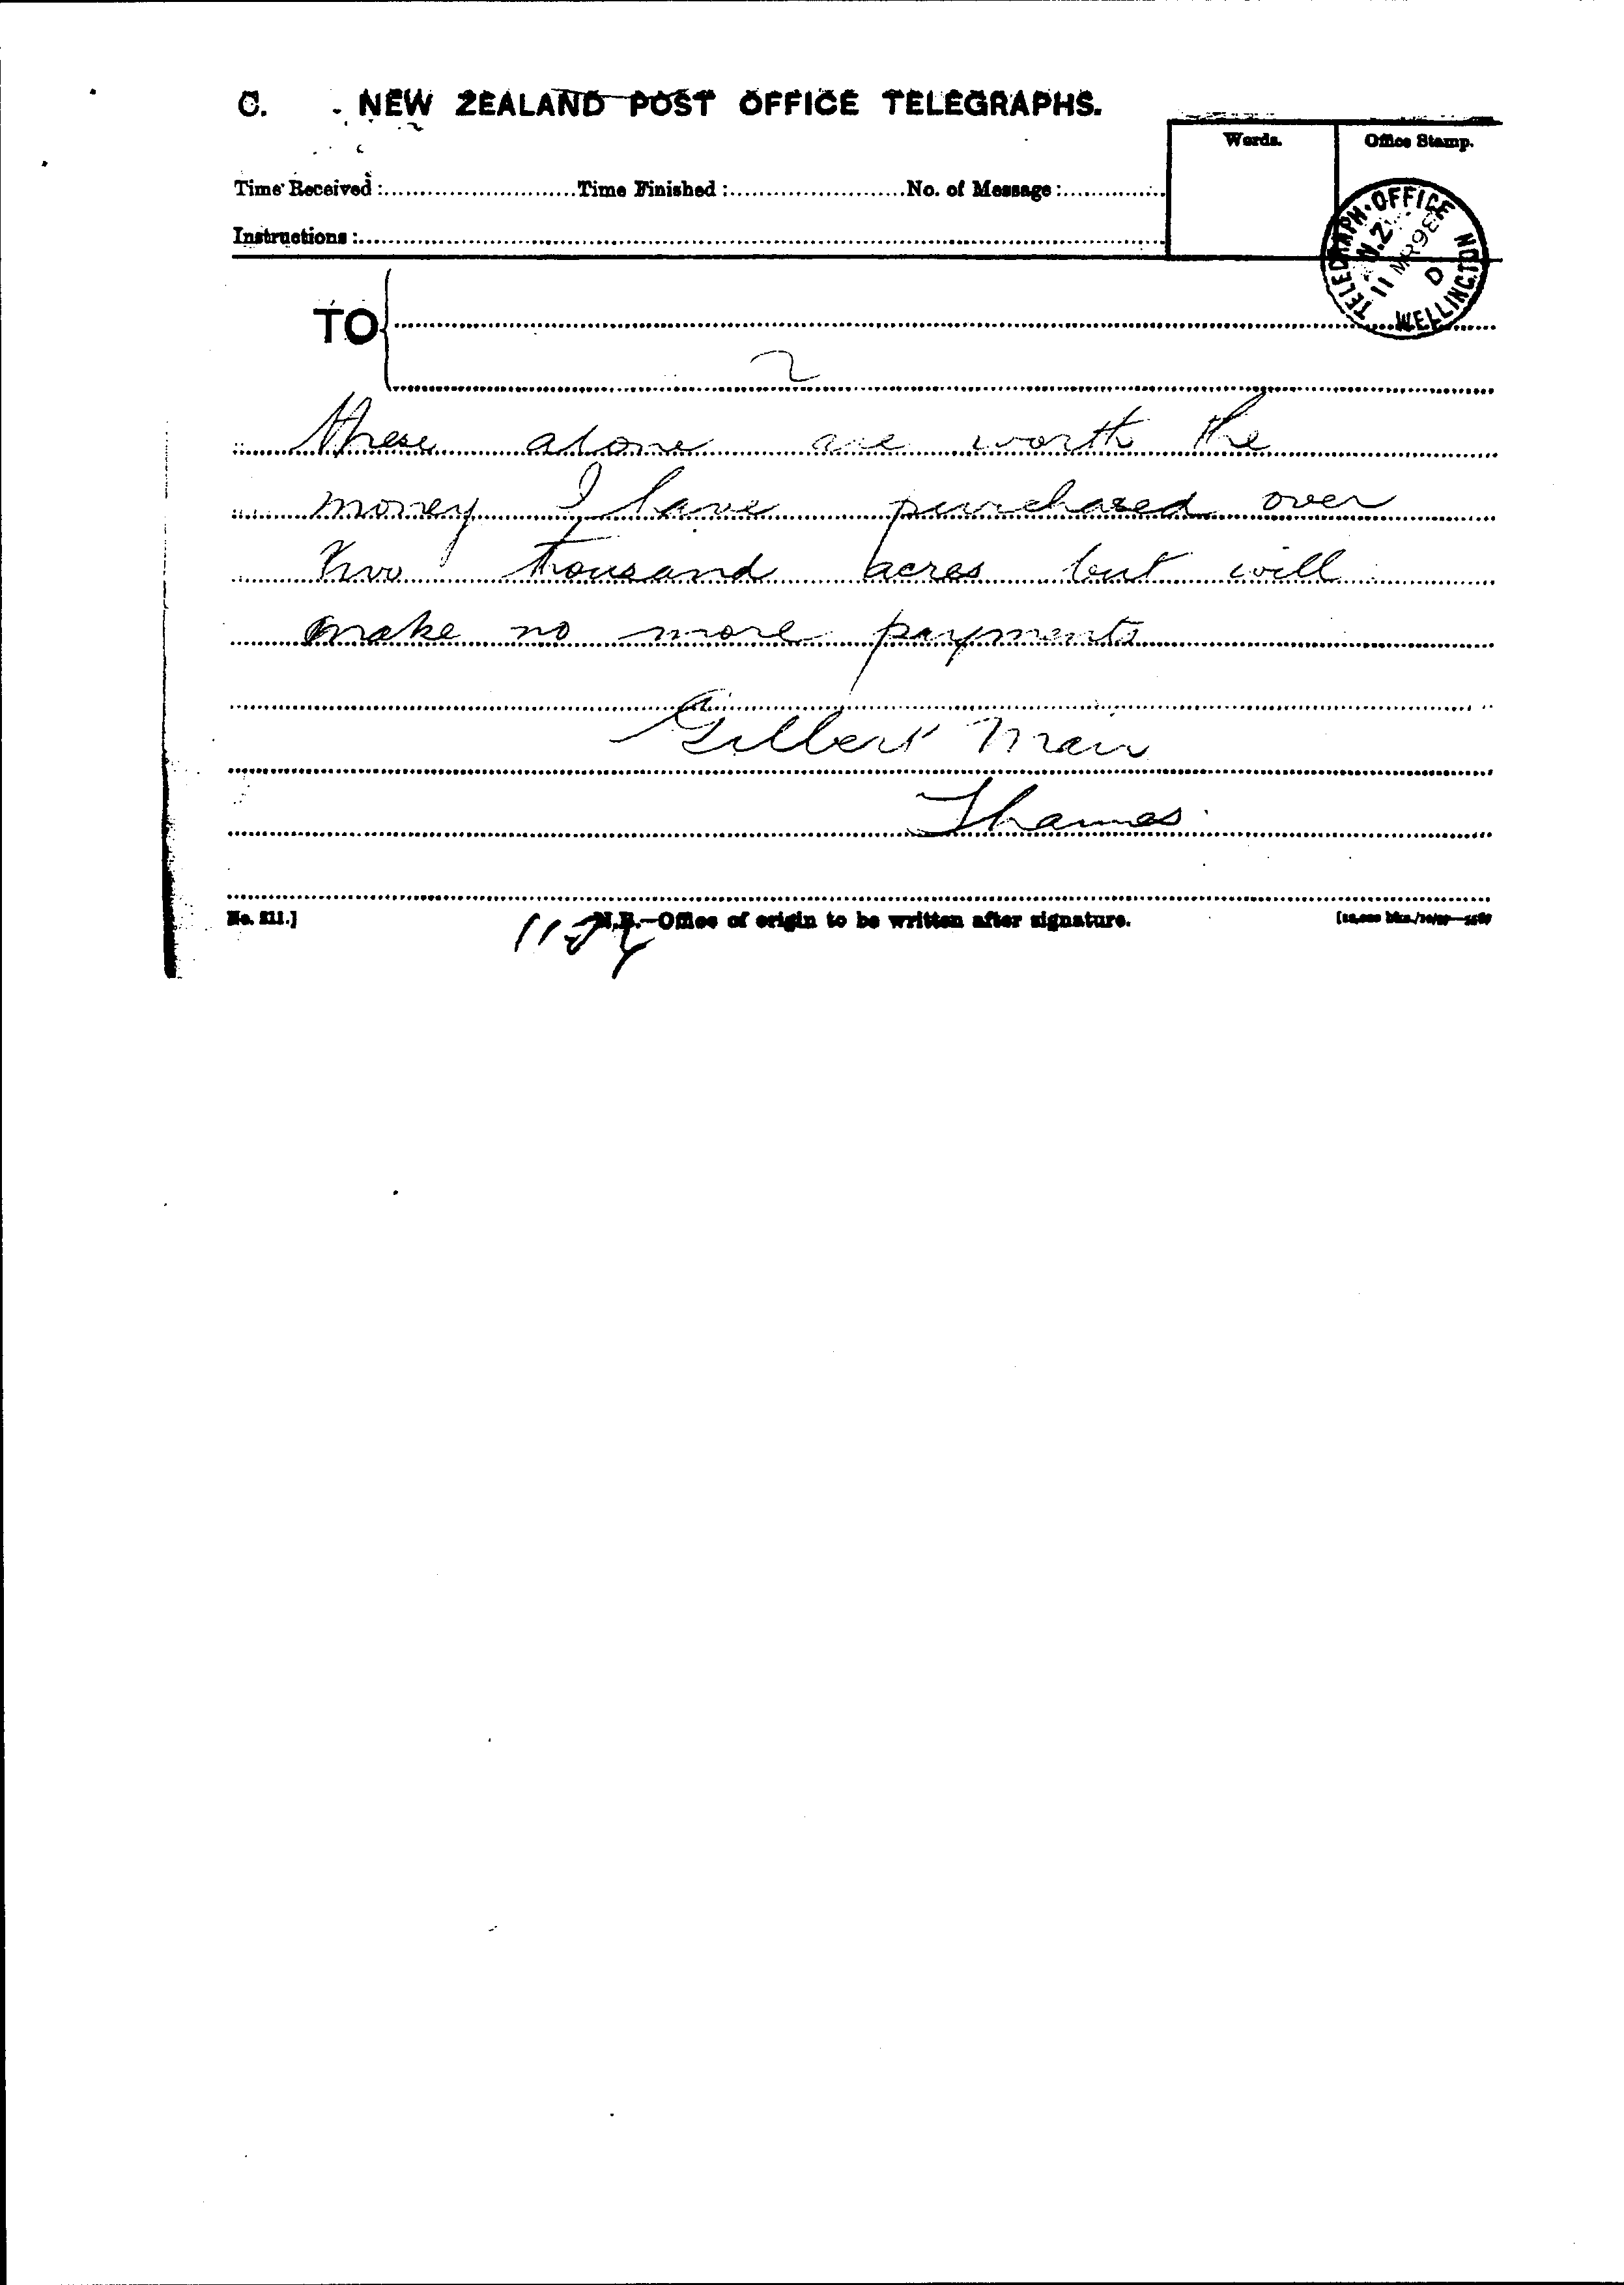 C. NEW ZEALAND POST OFFICE TELEGRAPHS.
Words. Office Stamp.
Time Received : Time Finished : No. of Message :
Instructions :
TELEGRAPH·OFFICE N.Z. 11 MR 98 D WELLINGTON
TO
2
these alone are worth the
money I have purchased over
two thousand acres but will
make no more payments
Gilbert Mair
Thames
No. 211.] N.B.—Office of origin to be written after signature.